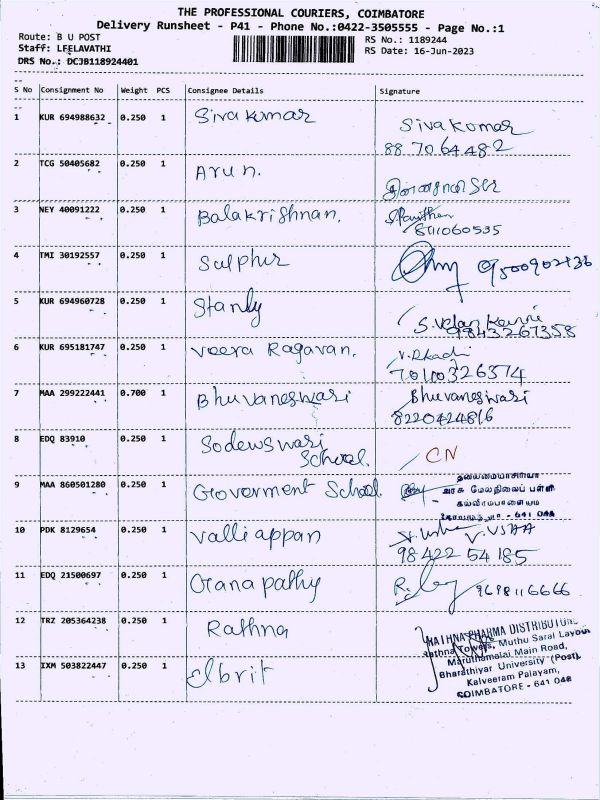 THE PROFESSIONAL COURIERS, COIMBATORE
Delivery Runsheet - P41 - Phone No.:0422-3505555 - Page No.:1
Route: B U POST
RS No.: 1189244
Staff: LEELAVATHI
RS Date: 16-Jun-2023
DRS No.: DCJB118924401
S No Consignment No Weight PCS Consignee Details Signature
1 KUR 694988632 0.250 1 Sivakumar Sivakumar
88 70 64 48 2
2 TCG 50405682 0.250 1 Arun.
3 NEY 40091222 0.250 1 Balakrishnan.
8111060535
4 TMI 30192557 0.250 1 Sulphur 9500902136
5 KUR 694960728 0.250 1 Stanly S. Velan
9843267358
6 KUR 695181747 0.250 1 Veera Ragavan.
7010326574
7 MAA 299222441 0.700 1 Bhuvaneswari Bhuvaneswari
8220424816
8 EDQ 83910 0.250 1 Sodewswari
School. CN
9 MAA 860501280 0.250 1 Goverment School தலைமையாசிரியர்
அரசு மேல்நிலைப் பள்ளி
கல்வீரம்பாளையம்
641 046
10 PDK 8129654 0.250 1 Valliappan V. USHA
98422 54185
11 EDQ 21500697 0.250 1 Ganapathy 9698116666
12 TRZ 205364238 0.250 1 Rathna RATHNA PHARMA DISTRIBUTORS
Rathna Towers, Muthu Saral Layout
Maruthamalai Main Road,
13 IXM 503822447 0.250 1 Elbrit Bharathiyar University (Post),
Kalveeram Palayam,
COIMBATORE - 641 046